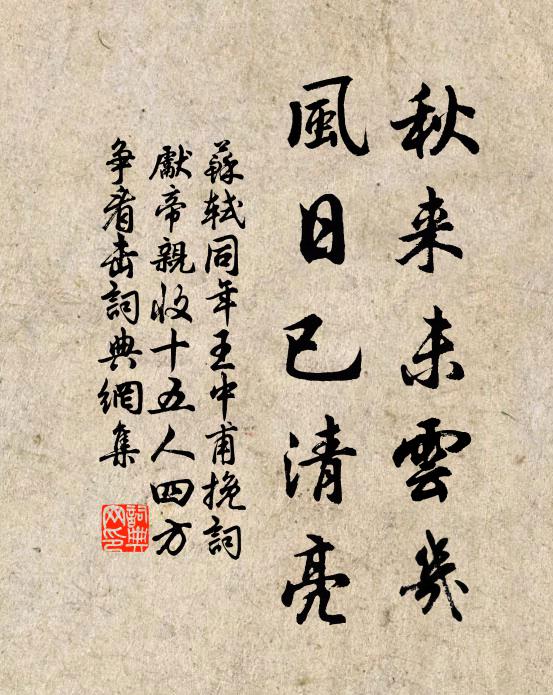 秋来未雲幾
風日已清亮
蘇軾同年王中甫挽詞
獻帝親收十五人四方
争看击詞典網集
詞典
网印